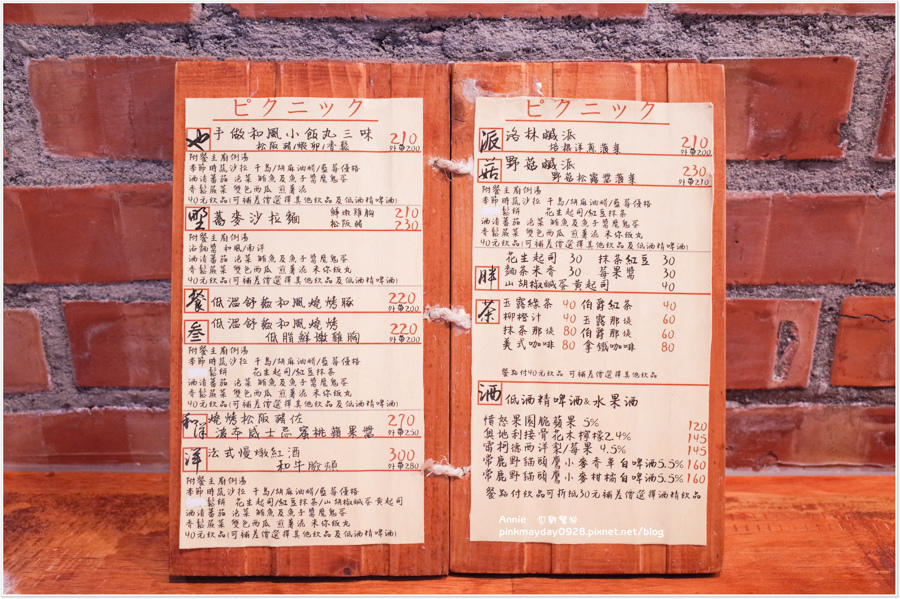 ピクニック
也 手做和風小飯丸三味 210
松阪豬/蝦卵/香鬆 外帶200
附餐主廚例湯
季節時蔬沙拉 千島/胡麻油醋/藍莓優格
酒漬蕃茄 泡菜 鮪魚及魚子醬魔鬼蛋
香鬆蔬菜 雙色西瓜 煎薯泥
40元飲品(可補差價選擇其他飲品及低酒精啤酒)
野 蕎麥沙拉麵 鮮嫩雞胸 210
松阪豬 230
附餐主廚例湯
沾麵醬 和風/西洋
酒漬蕃茄 泡菜 鮪魚及魚子醬魔鬼蛋
香鬆蔬菜 雙色西瓜 煎薯泥 米你飯丸
40元飲品(可補差價選擇其他飲品及低酒精啤酒)
餐 低溫舒肥和風燒烤豚 220
外帶200
叁 低溫舒肥和風燒烤
低脂鮮嫩雞胸 220
外帶200
附餐主廚例湯
季節時蔬沙拉 千島/胡麻油醋/藍莓優格
鬆餅 花生起司/紅豆抹茶
酒漬蕃茄 泡菜 鮪魚及魚子醬魔鬼蛋
香鬆蔬菜 雙色西瓜 煎薯泥 米你飯丸
40元飲品(可補差價選擇其他飲品及低酒精啤酒)
和洋 燒烤松阪豬佐 270
波本威士忌蜜桃蘋果醬 外帶250
洋 法式慢燉紅酒 300
和牛臉頰 外帶280
附餐主廚例湯
季節時蔬沙拉 千島/胡麻油醋/藍莓優格
鬆餅 花生起司/紅豆抹茶/山胡椒鹹蛋黃起司
酒漬蕃茄 泡菜 鮪魚及魚子醬魔鬼蛋
香鬆蔬菜 雙色西瓜 煎薯泥 米你飯丸
40元飲品(可補差價選擇其他飲品及低酒精啤酒)
ピクニック
派 洛林鹹派 210
培根洋蔥菠菜 外帶200
菇 野菇鹹派 230
野菇松露醬菠菜 外帶210
附餐主廚例湯
季節時蔬沙拉 千島/胡麻油醋/藍莓優格
鬆餅 花生起司/紅豆抹茶
酒漬蕃茄 泡菜 鮪魚及魚子醬魔鬼蛋
香鬆蔬菜 雙色西瓜 煎薯泥 米你飯丸
40元飲品(可補差價選擇其他飲品及低酒精啤酒)
胖 花生起司 30 抹茶紅豆 30
麵茶米香 30 莓果醬 30
山胡椒鹹蛋黃起司 40
茶 玉露綠茶 40 伯爵紅茶 40
柳橙汁 40 玉露那堤 60
抹茶那堤 80 伯爵那堤 60
美式咖啡 80 拿鐵咖啡 80
餐點付40元飲品 可補差價選擇其他飲品
酒 低酒精啤酒&水果酒
憤怒果園脆蘋果 5% 120
奧地利接骨花木檸檬2.4% 145
雷柯德西洋梨/莓果 4.5% 145
常鹿野貓頭鷹小麥香草白啤酒5.5% 160
常鹿野貓頭鷹小麥柑橘白啤酒5.5% 160
餐點付飲品可折抵30元補差價選擇酒精飲品
Annie
pinkmayday0928.pixnet.net/blog